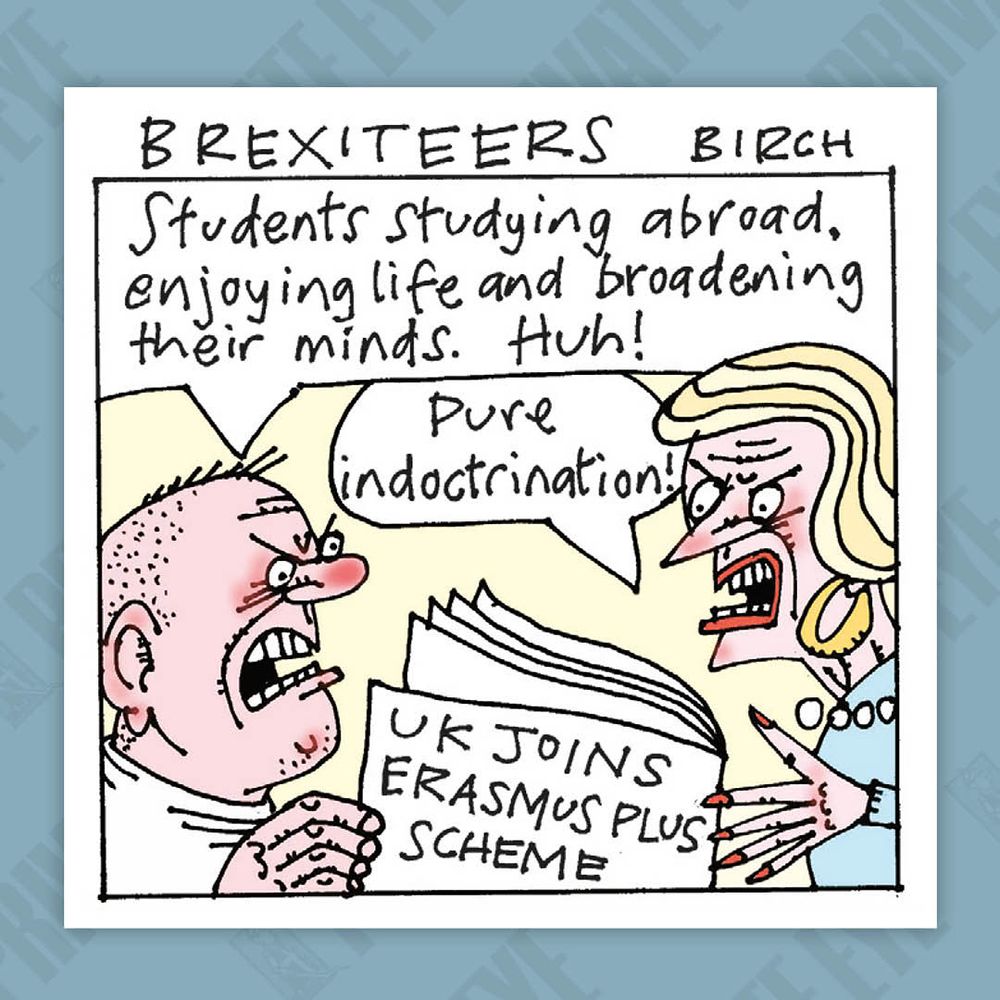 BREXITEERS BIRCH
Students studying abroad,
enjoying life and broadening
their minds. Huh!
Pure
indoctrination!
UK JOINS
ERASMUS PLUS
SCHEME
PRIVATE EYE